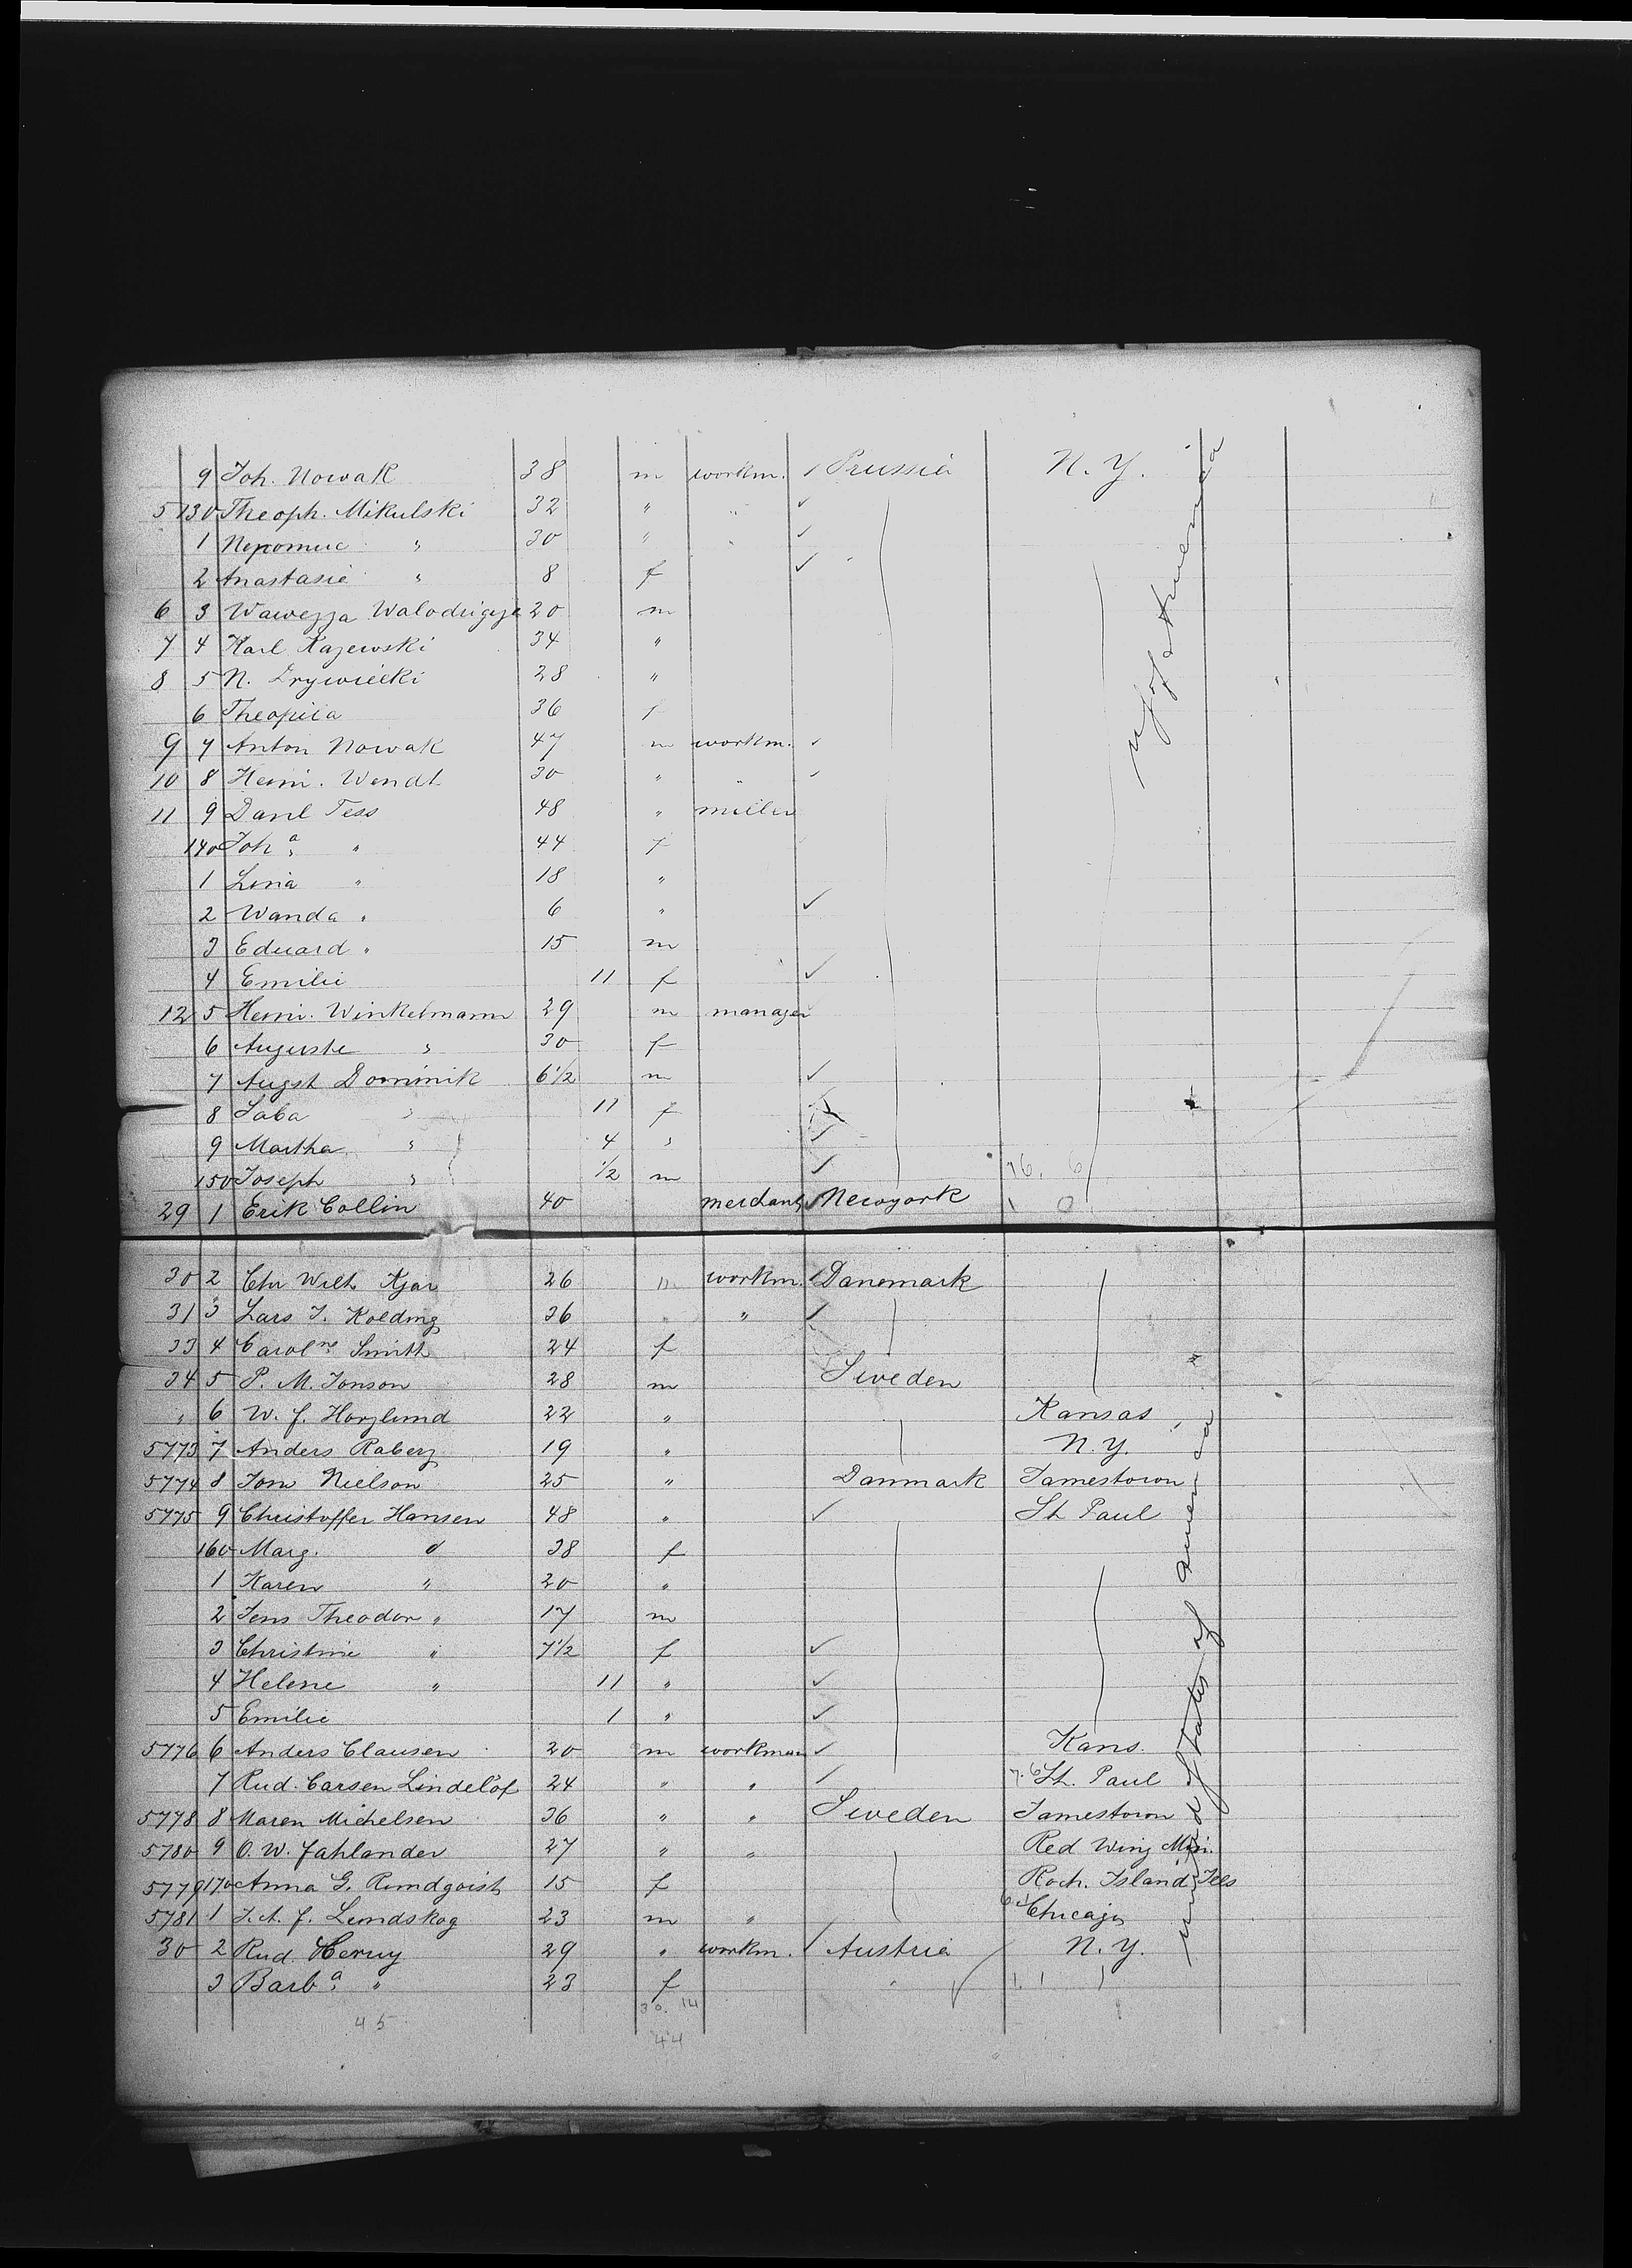 9 Joh. Nowak 38 m workm. ✓ Prussia N. Y.
5 130 Theoph. Mikulski 32 " " ✓
1 Nepomuc " 30 " " ✓
2 Anastasie " 8 f ✓
6 3 Wawezza 20 m
7 4 Karl Kajewski 34 "
8 5 N. 28 "
6 Theopila 36 f
9 7 Anton Nowak 47 m workm. ✓
10 8 Heinr. Wendt 30 " " ✓
11 9 Danl Tess 48 " miller
140 Joha " 44 f
1 Lina " 18 "
2 Wanda " 6 " ✓
3 Eduard " 15 m
4 Emilie 11 f ✓
12 5 Heinr. Winkelmann 29 m manager
6 Auguste " 30 f
7 Augst Dominik 6½ m ✓
8 " 11 f ✓
9 Martha " 4 " ✓
150 Joseph " ½ m ✓ 76. 6
29 1 Erik Collin 40 merchant ✓ Newyork 1 0
30 2 Chr Wilh Kjar 26 m workm. ✓ Danemark
31 3 Lars J. Kolding 36 " " ✓
33 4 Carolne Smith 24 f
34 5 P. M. Jonson 28 m Sweden
" 6 W. f. 22 " Kansas
5773 7 Anders Raberg 19 " N.Y.
5774 8 Jom Nielson 25 " Danmark Jamestown
5775 9 Christoffer Hansen 48 " ✓ St Paul
160 Marg. d 38 f
1 Karen " 20 "
2 Jens Theodor " 17 m
3 Christine " 7½ f ✓
4 Helene " 11 " ✓
5 Emilie 1 " ✓
5776 6 Anders Clausen 20 m workman ✓ Kans.
7 Rud. Carsen Lindelöf 24 " " ✓ 7. 6 St. Paul
5778 8 Maren Michelsen 36 " " Sweden Jamestown
5780 9 O. W. Fahlander 27 " " Red Wing Min.
5779 170 Anna G. Rundqvist 15 f Roch. Island Ills
5781 1 J. A. f. Lundskog 23 m " Chicago
30 2 Rud. Heruy 29 " workm. ✓ Austria N. Y.
3 Barba " 23 f 1. 1
30. 14
45
44
united States of America